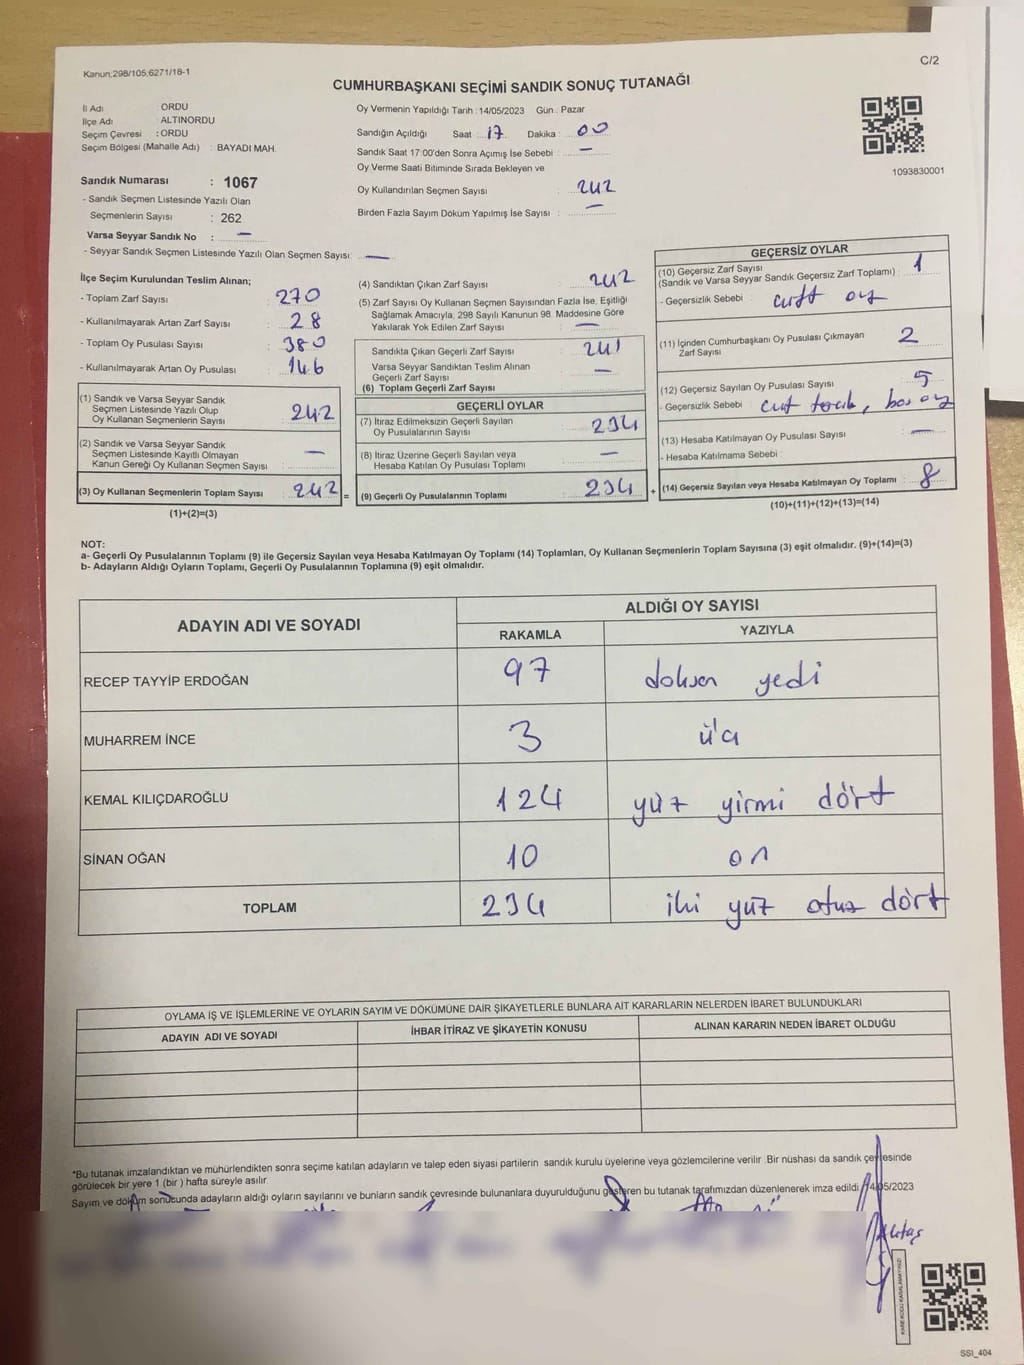 C/2
Kanun;298/105;6271/18-1
CUMHURBAŞKANI SEÇİMİ SANDIK SONUÇ TUTANAĞI
İl Adı : ORDU
İlçe Adı : ALTINORDU
Seçim Çevresi : ORDU
Seçim Bölgesi (Mahalle Adı) : BAYADI MAH.
Sandık Numarası : 1067
- Sandık Seçmen Listesinde Yazılı Olan
Seçmenlerin Sayısı : 262
Varsa Seyyar Sandık No : —
- Seyyar Sandık Seçmen Listesinde Yazılı Olan Seçmen Sayısı: —
Oy Vermenin Yapıldığı Tarih : 14/05/2023 Gün : Pazar
Sandığın Açıldığı Saat : 17 Dakika : 00
Sandık Saat 17:00'den Sonra Açımış İse Sebebi : —
Oy Verme Saati Bitiminde Sırada Bekleyen ve
Oy Kullandırılan Seçmen Sayısı : 242
Birden Fazla Sayım Döküm Yapılmış İse Sayısı : —
1093830001
İlçe Seçim Kurulundan Teslim Alınan;
- Toplam Zarf Sayısı : 270
- Kullanılmayarak Artan Zarf Sayısı : 28
- Toplam Oy Pusulası Sayısı : 380
- Kullanılmayarak Artan Oy Pusulası : 146
(1) Sandık ve Varsa Seyyar Sandık
Seçmen Listesinde Yazılı Olup
Oy Kullanan Seçmenlerin Sayısı : 242
(2) Sandık ve Varsa Seyyar Sandık
Seçmen Listesinde Kayıtlı Olmayan
Kanun Gereği Oy Kullanan Seçmen Sayısı : —
(3) Oy Kullanan Seçmenlerin Toplam Sayısı : 242 =
(1)+(2)=(3)
(4) Sandıktan Çıkan Zarf Sayısı : 242
(5) Zarf Sayısı Oy Kullanan Seçmen Sayısından Fazla İse, Eşitliği
Sağlamak Amacıyla, 298 Sayılı Kanunun 98. Maddesine Göre
Yakılarak Yok Edilen Zarf Sayısı : —
Sandıkta Çıkan Geçerli Zarf Sayısı : 241
Varsa Seyyar Sandıktan Teslim Alınan
Geçerli Zarf Sayısı : —
(6) Toplam Geçerli Zarf Sayısı :
GEÇERLİ OYLAR
(7) İtiraz Edilmeksizin Geçerli Sayılan
Oy Pusulalarının Sayısı : 234
(8) İtiraz Üzerine Geçerli Sayılan veya
Hesaba Katılan Oy Pusulası Toplamı : —
(9) Geçerli Oy Pusulalarının Toplamı : 234 +
GEÇERSİZ OYLAR
(10) Geçersiz Zarf Sayısı
(Sandık ve Varsa Seyyar Sandık Geçersiz Zarf Toplamı) : 1
- Geçersizlik Sebebi : oy
(11) İçinden Cumhurbaşkanı Oy Pusulası Çıkmayan
Zarf Sayısı : 2
(12) Geçersiz Sayılan Oy Pusulası Sayısı : 5
- Geçersizlik Sebebi : boş oy
(13) Hesaba Katılmayan Oy Pusulası Sayısı : —
- Hesaba Katılmama Sebebi :
(14) Geçersiz Sayılan veya Hesaba Katılmayan Oy Toplamı : 8
(10)+(11)+(12)+(13)=(14)
NOT:
a- Geçerli Oy Pusulalarının Toplamı (9) ile Geçersiz Sayılan veya Hesaba Katılmayan Oy Toplamı (14) Toplamları, Oy Kullanan Seçmenlerin Toplam Sayısına (3) eşit olmalıdır. (9)+(14)=(3)
b- Adayların Aldığı Oyların Toplamı, Geçerli Oy Pusulalarının Toplamına (9) eşit olmalıdır.
ADAYIN ADI VE SOYADI ALDIĞI OY SAYISI
RAKAMLA YAZIYLA
RECEP TAYYİP ERDOĞAN 97 doksan yedi
MUHARREM İNCE 3 üç
KEMAL KILIÇDAROĞLU 124 yüz yirmi dört
SİNAN OĞAN 10 on
TOPLAM 234 iki yüz otuz dört
OYLAMA İŞ VE İŞLEMLERİNE VE OYLARIN SAYIM VE DÖKÜMÜNE DAİR ŞİKAYETLERLE BUNLARA AİT KARARLARIN NELERDEN İBARET BULUNDUKLARI
ADAYIN ADI VE SOYADI İHBAR İTİRAZ VE ŞİKAYETİN KONUSU ALINAN KARARIN NEDEN İBARET OLDUĞU
*Bu tutanak imzalandıktan ve mühürlendikten sonra seçime katılan adayların ve talep eden siyasi partilerin sandık kurulu üyelerine veya gözlemcilerine verilir .Bir nüshası da sandık çevresinde
görülecek bir yere 1 (bir ) hafta süreyle asılır
Sayım ve döküm sonucunda adayların aldığı oyların sayılarını ve bunların sandık çevresinde bulunanlara duyurulduğunu gösteren bu tutanak tarafımızdan düzenlenerek imza edildi. 14/05/2023
KARE KODU KARALAMAYINIZ!
SSI_404